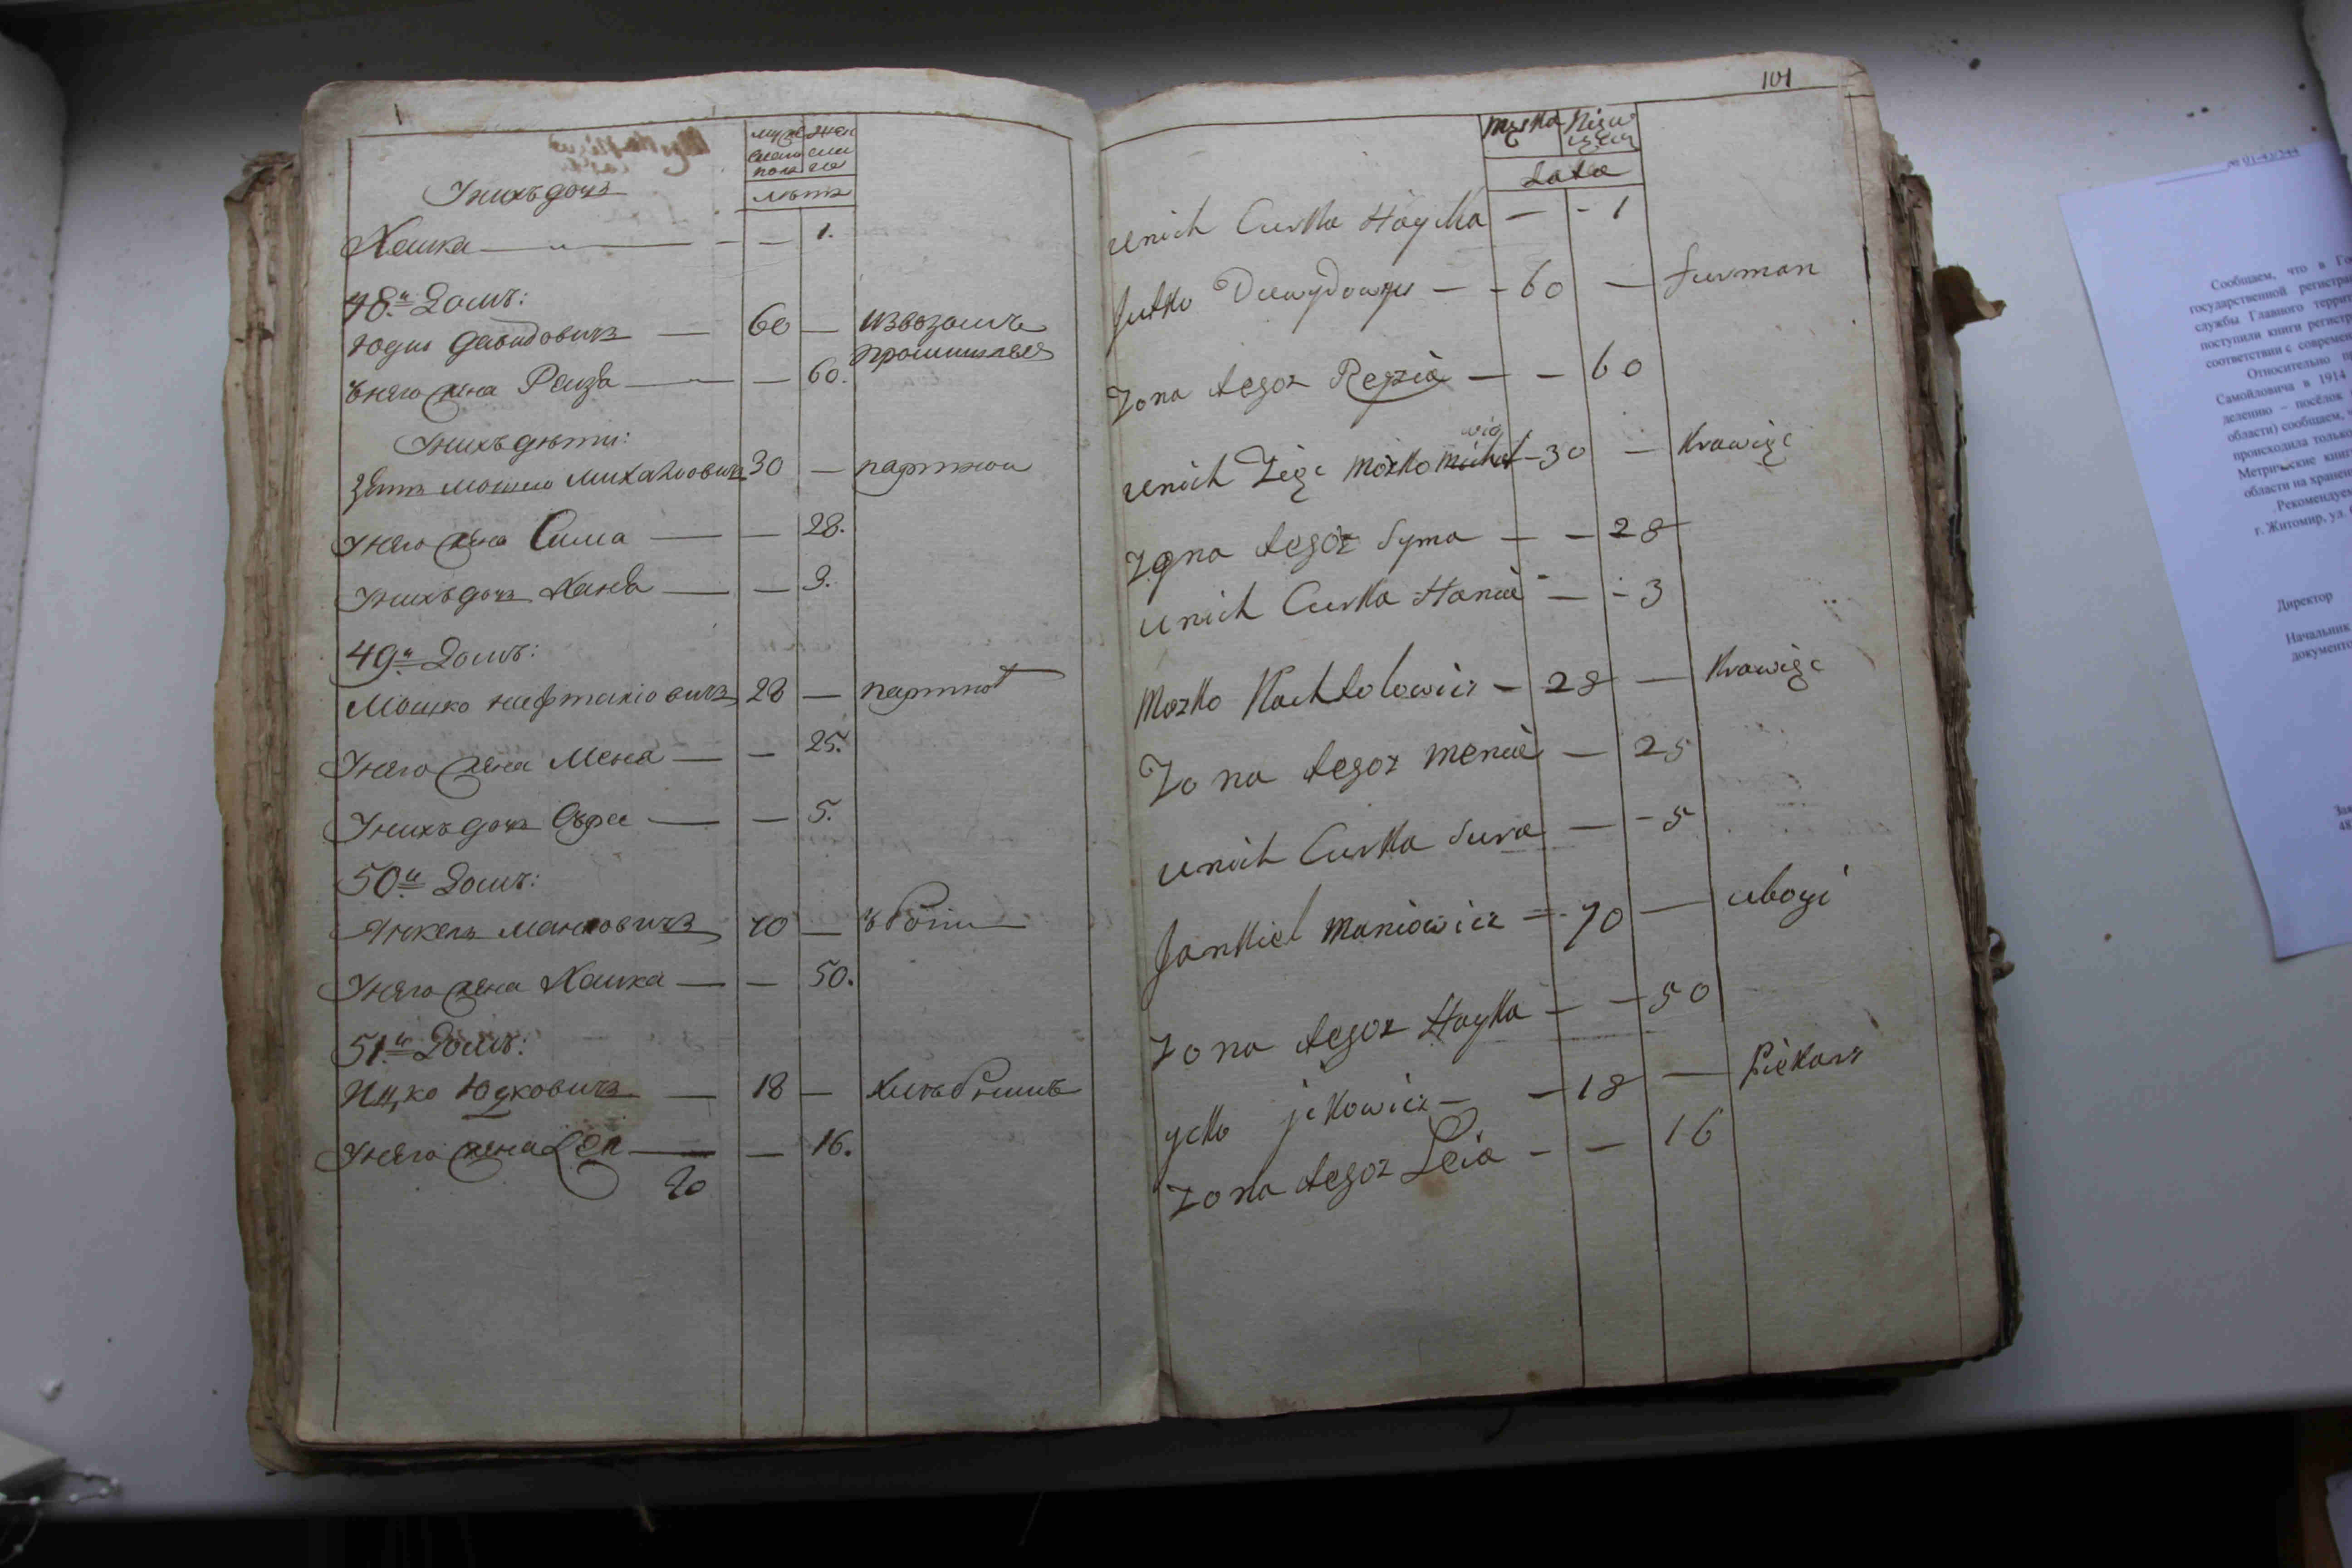 муже
ского
пола
жен
ско
го
лѣтъ
Унихъ дочь
Хаика — — 1.
48й Домъ:
Юдко Давидовичъ — 60 — Извозомъ
промишляе
Унего жена Реизя — — 60.
Унихъ дѣти:
Зять Мошко Михайловичъ 30 — партной
Унего жена Сима — — 28.
Унихъ дочь Ханя — — 3.
49й Домъ:
Мошко Нафталіовичъ 28 — партной
Унего жена Меня — — 25.
Унихъ дочь Сура — — 5.
50й Домъ:
Янкель Манiовичъ 70 — убогiи
Унего жена Хаика — — 50.
51й Домъ:
Ицко Юдковичъ — 18 — хлебникъ
Унего жена Лея — — 16.
20
101
Męska Niew
iescia
Lata
Unich Curka Hayka — - 1
Jutko Dawydowicz — - 60 — furman
Zona tegoz Reyzia — - 60
wicz
Unich Zięc Moszko Michel - 30 — Krawięc
Zona tegoz Syma — - 28
Unich Curka Hania — - 3
Moszko Nachtolowicz - 28 — Krawięc
Zona tegoz Menia — 25
Unich Curka Sura — - 5
Jankiel Maniowicz — 70 — ubogi
Zona tegoz Hayka — - 50
ycko jckowicz — - 18 — Piekarz
Zona tegoz Leia - — 16
№ 01-43/344
Сообщаем, что в Го
государственной регистра
службы Главного террит
поступили книги регистр
соответствии с современ
Относительно п
Самойловича в 1914
делению – посёлок
области) сообщаем,
происходила только
Метрические книг
области на хранен
Рекомендуем
г. Житомир, ул.
Директор
Начальник
документо